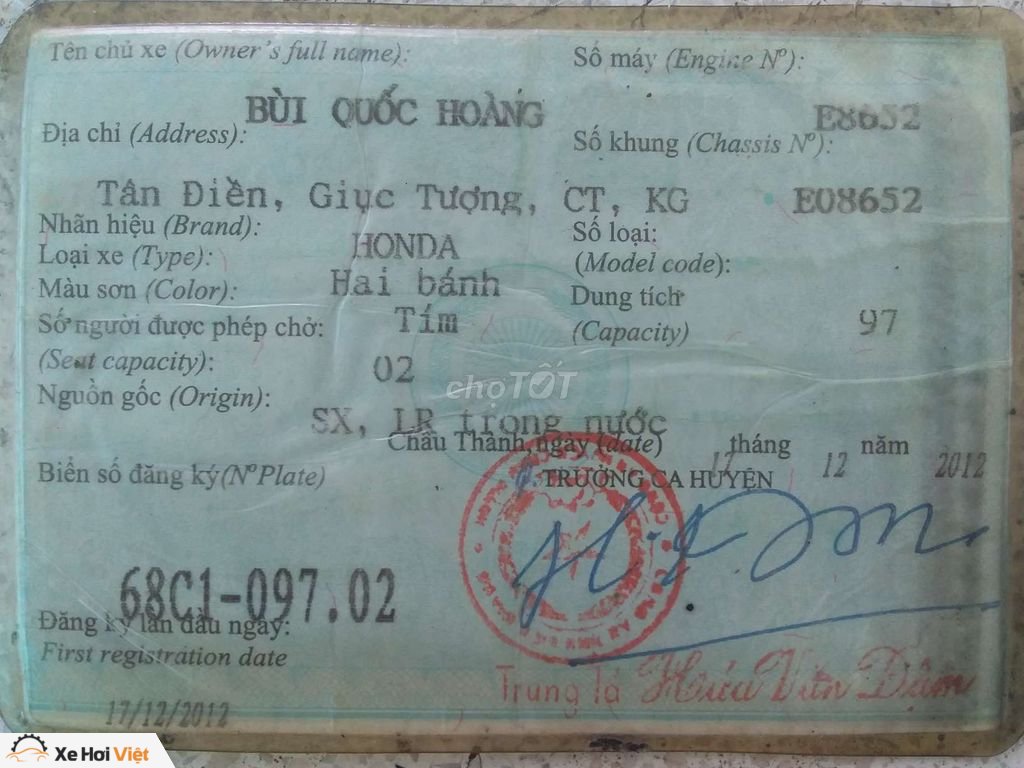 Tên chủ xe (Owner's full name):
BÙI QUỐC HOÀNG
Số máy (Engine Nº):
E8652
Địa chỉ (Address):
Tân Điền, Giục Tượng, CT, KG
Số khung (Chassis Nº):
E08652
Nhãn hiệu (Brand):
HONDA
Số loại:
(Model code):
Loại xe (Type):
Hai bánh
Màu sơn (Color):
Tím
Dung tích
(Capacity)
97
Số người được phép chở:
(Seat capacity):
02
Nguồn gốc (Origin):
SX, LR trong nước
chợTỐT
Châu Thành, ngày (date) 17 tháng 12 năm 2012
TRƯỞNG CA HUYỆN
Biển số đăng ký(Nº Plate)
68C1-097.02
Đăng ký lần đầu ngày:
First registration date
17/12/2012
Trung Tá
Xe Hơi Việt